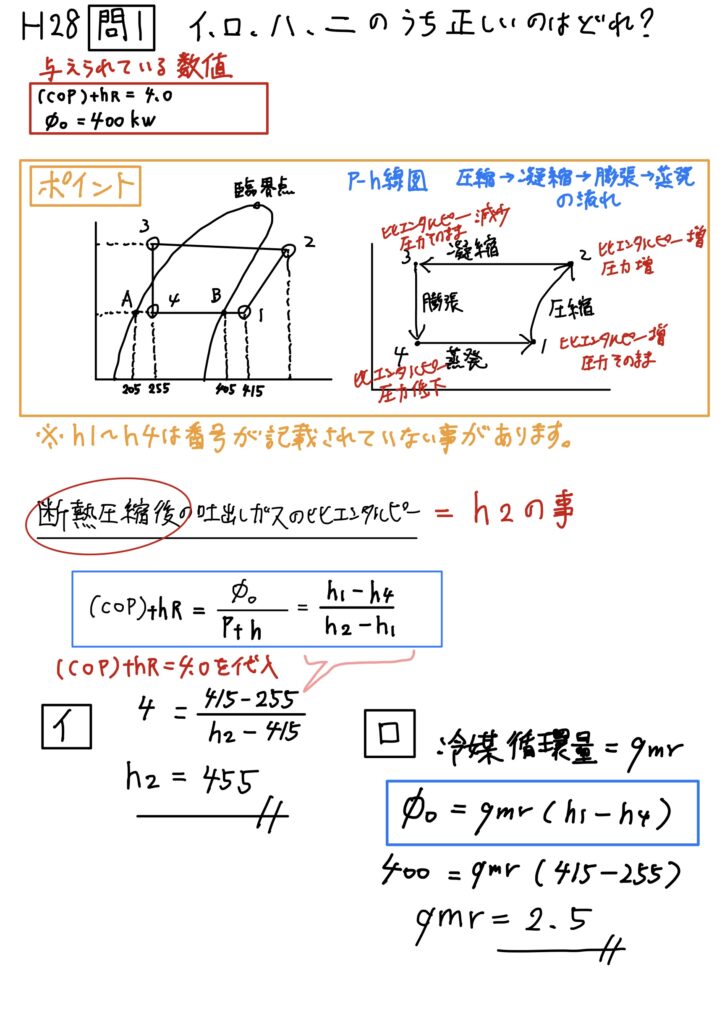 H28 問1 イ、ロ、ハ、ニのうち正しいのはどれ？
与えられている数値
(COP)thR = 4.0
Φ₀ = 400 kw
ポイント
P-h線図 圧縮→凝縮→膨張→蒸発
の流れ
臨界点
3
2
A
4
B
1
205 255 405 415
比エンタルピー減少
圧力そのまま
3
凝縮
2
比エンタルピー増
圧力増
膨張
圧縮
4
蒸発
1
比エンタルピー増
圧力そのまま
比エンタルピー
圧力低下
※h1〜h4は番号が記載されていない事があります。
断熱圧縮後の吐出しガスの比エンタルピー = h2の事
(COP)thR = Φ₀ / Pth = h₁-h₄ / h₂-h₁
(COP)thR=4.0を代入
イ
4 = 415-255 / h₂-415
h₂ = 455
ロ
冷媒循環量=qmr
Φ₀ = qmr (h₁-h₄)
400 = qmr (415-255)
qmr = 2.5